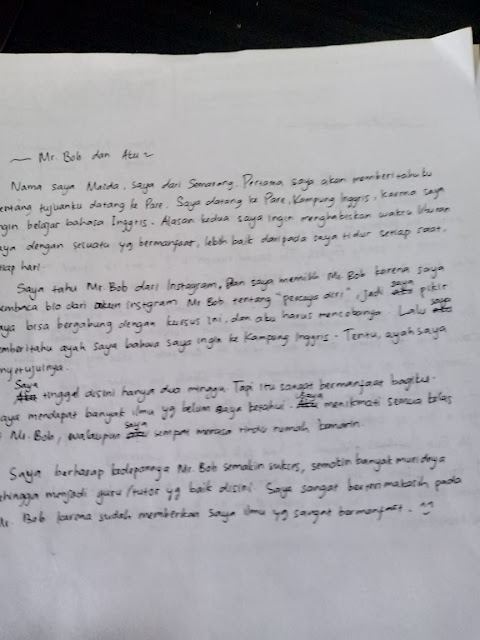 ~ Mr. Bob dan Aku ~
Nama saya Maida, saya dari Semarang. Pertama saya akan memberitahumu
tentang tujuanku datang ke Pare. Saya datang ke Pare, Kampung Inggris, karena saya
ingin belajar bahasa Inggris. Alasan kedua saya ingin menghabiskan waktu liburan
saya dengan sesuatu yg bermanfaat, lebih baik daripada saya tidur setiap saat,
tiap hari.
Saya tahu Mr Bob dari Instagram, Dan saya memilih Mr Bob karena saya
membaca bio dari akun Instgram Mr Bob tentang "percaya diri", jadi saya pikir
saya bisa bergabung dengan kursus ini, dan aku harus mencobanya. Lalu saya
memberitahu ayah saya bahwa saya ingin ke Kampung Inggris. Tentu, ayah saya
menyetujuinya.
Saya tinggal disini hanya dua minggu. Tapi itu sangat bermanfaat bagiku.
Saya mendapat banyak ilmu yg belum saya ketahui. saya menikmati semua kelas
di Mr. Bob, walaupun saya sempat merasa rindu rumah kemarin.
Saya berharap kedepannya Mr. Bob semakin sukses, semakin banyak muridnya
sehingga menjadi guru/tutor yg baik disini. Saya sangat berterimakasih pada
Mr. Bob karena sudah memberikan saya ilmu yg sangat bermanfaat. ^^